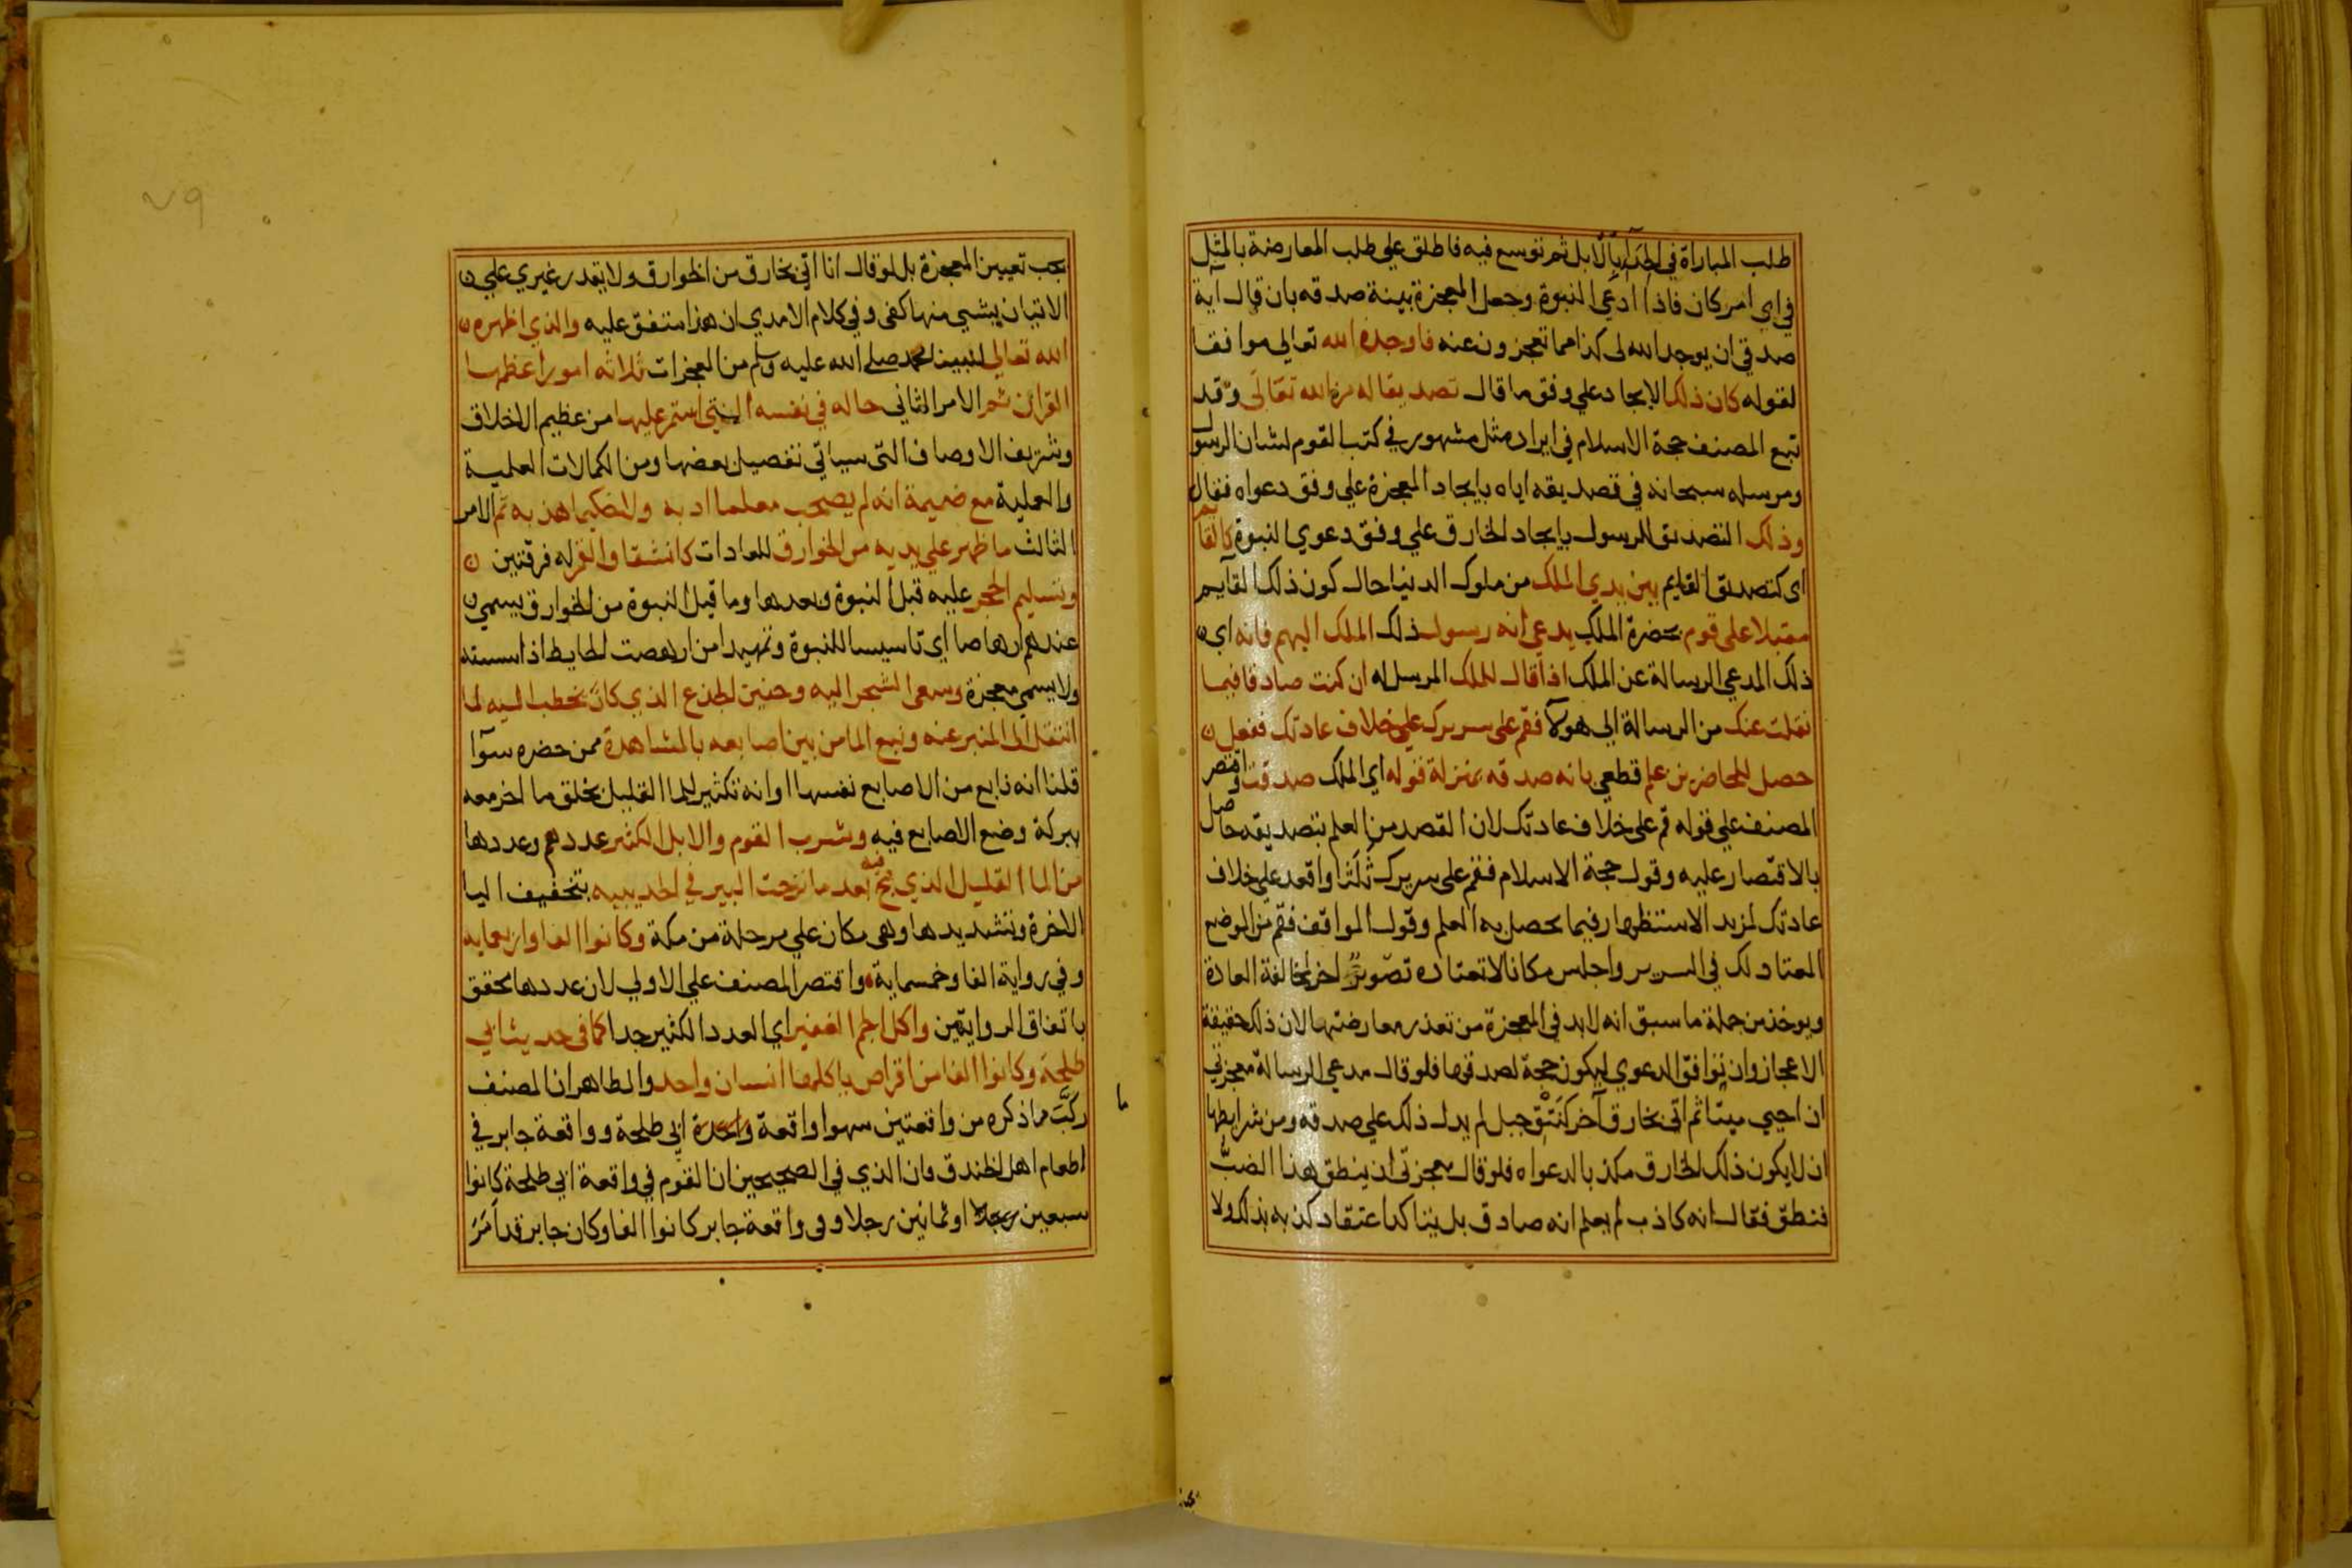 طلب المباراة في الحداء بالابل ثم توسع فيه فاطلق علي طلب المعارضة بالمثل
في اي امر كان فاذا ادعي النبوة وجعل المعجزة بينة صدقه بان قال اية
صدقي ان يوجد الله لى كذا مما تعجزون عنه فاوجده الله تعالي موافقا
لقوله كان ذلك الايجاد علي وفق ما قال تصديقا له من الله تعالى وقد
تبع المصنف حجة الاسلام في ايراد مثل مشهور في كتب القوم لشان الرسول
ومرسله سبحانه في تصديقه اياه بايجاد المعجزة علي وفق دعواه فقال
وذلك التصديق للرسول بايجاد الخارق علي وفق دعوي النبوة كالقائم
اى كتصديق القايم بين يدي الملك من ملوك الدنيا حال كون ذلك القايم
مقبلا على قوم بحضرة الملك يدعي انه رسول ذلك الملك اليهم فانه اي
ذلك المدعي الرسالة عن الملك اذا قال للملك المرسل له ان كنت صادقا فيما
نقلت عنك من الرسالة الي هولآ فقم على سريرك علي خلاف عادتك ففعل
حصل للحاضرين علم قطعي بانه صدقه بمنزلة قوله اي الملك صدقت واقتصر
المصنف علي قوله قم على خلاف عادتك لان القصد من العلم بتصديقه حاصل
بالاقتصار عليه وقول حجة الاسلام فقم على سريرك ثلثا واقعد علي خلاف
عادتك لمزيد الاستظهار فيما يحصل به العلم وقول المواقف فقم من الموضع
المعتاد لك في السرير واجلس مكانا لا تعتاده تصوير اخر لمخالفة العادة
ويوخذ من جملة ما سبق انه لابد في المعجزة من تعذر معارضتها لان ذلك حقيقة
الاعجاز وان توافق الدعوي ليكون حجة لصدقها فلو قال مدعي الرسالة معجزتي
ان احيي ميتا ثم اتي بخارق آخر كنتق جبل لم يدل ذلك على صدقه ومن شرايطها
ان لا يكون ذلك الخارق مكذبا لدعواه فلو قال معجزتى ان ينطق هذا الضب
فنطق فقال انه كاذب لم يعلم انه صادق بل يتاكد اعتقاد كذبه بذلك ولا
يجب تعيين المعجزة بل لو قال انا اتي بخارق من الخوارق ولا يقدر غيري علي
الاتيان بشي منها كفى وفي كلام الامدي ان هذا متفق عليه والذي اظهره
الله تعالي لنبينا محمد صلى الله عليه وسلم من المعجزات ثلاثه امور اعظمها
القران ثم الامر الثاني حاله في نفسه التي استمر عليها من عظيم الاخلاق
وشريف الاوصاف التى سياتي تفصيل بعضها ومن الكمالات العلمية
والعملية مع ضميمة انه لم يصحب معلما ادبه ولا حكيما هذبه ثم الامر
الثالث ما ظهر علي يديه من الخوارق للعادات كانشقاق القمر له فرقتين
وتسليم الحجر عليه قبل النبوة وبعدها وما قبل النبوة من الخوارق يسمي
عندهم ارهاصا اي تاسيسا للنبوة وتمهيدا من ارهصت الحايط اذا اسسته
ولا يسمي معجزة وسعى الشجر اليه وحنين الجذع الذي كان يخطب اليه لما
انتقل الى المنبر عنه ونبع الما من بين اصابعه بالمشاهدة ممن حضره سوآ
قلنا انه نابع من الاصابع نفسها او انه تكثير للما القليل بخلق ما اخر معه
ببركة وضع الاصابع فيه وشرب القوم والابل الكثير عددهم وعددها
من الما القليل الذي مج فيه بعد ما نزحت البير في الحديبيه بتخفيف اليا
الاخرة وتشديدها وهى مكان علي مرحلة من مكة وكانوا الفا واربعمايه
وفي رواية الفا وخمسماية واقتصر المصنف علي الاولي لان عددها محقق
باتفاق الروايتين واكل الجم الغفير اي العدد الكثير جدا كما فى حديث ابي
طلحة وكانوا الفا من اقراص ياكلها انسان واحد والظاهر ان المصنف
ركب ما ذكره من واقعتين سهوا واقعة واحدة ابي طلحة وواقعة جابر في
اطعام اهل الخندق وان الذي في الصحيحين ان القوم في واقعة ابي طلحة كانوا
سبعين رجلا او ثمانين رجلا وفى واقعة جابر كانوا الفا وكان جابر قد امر